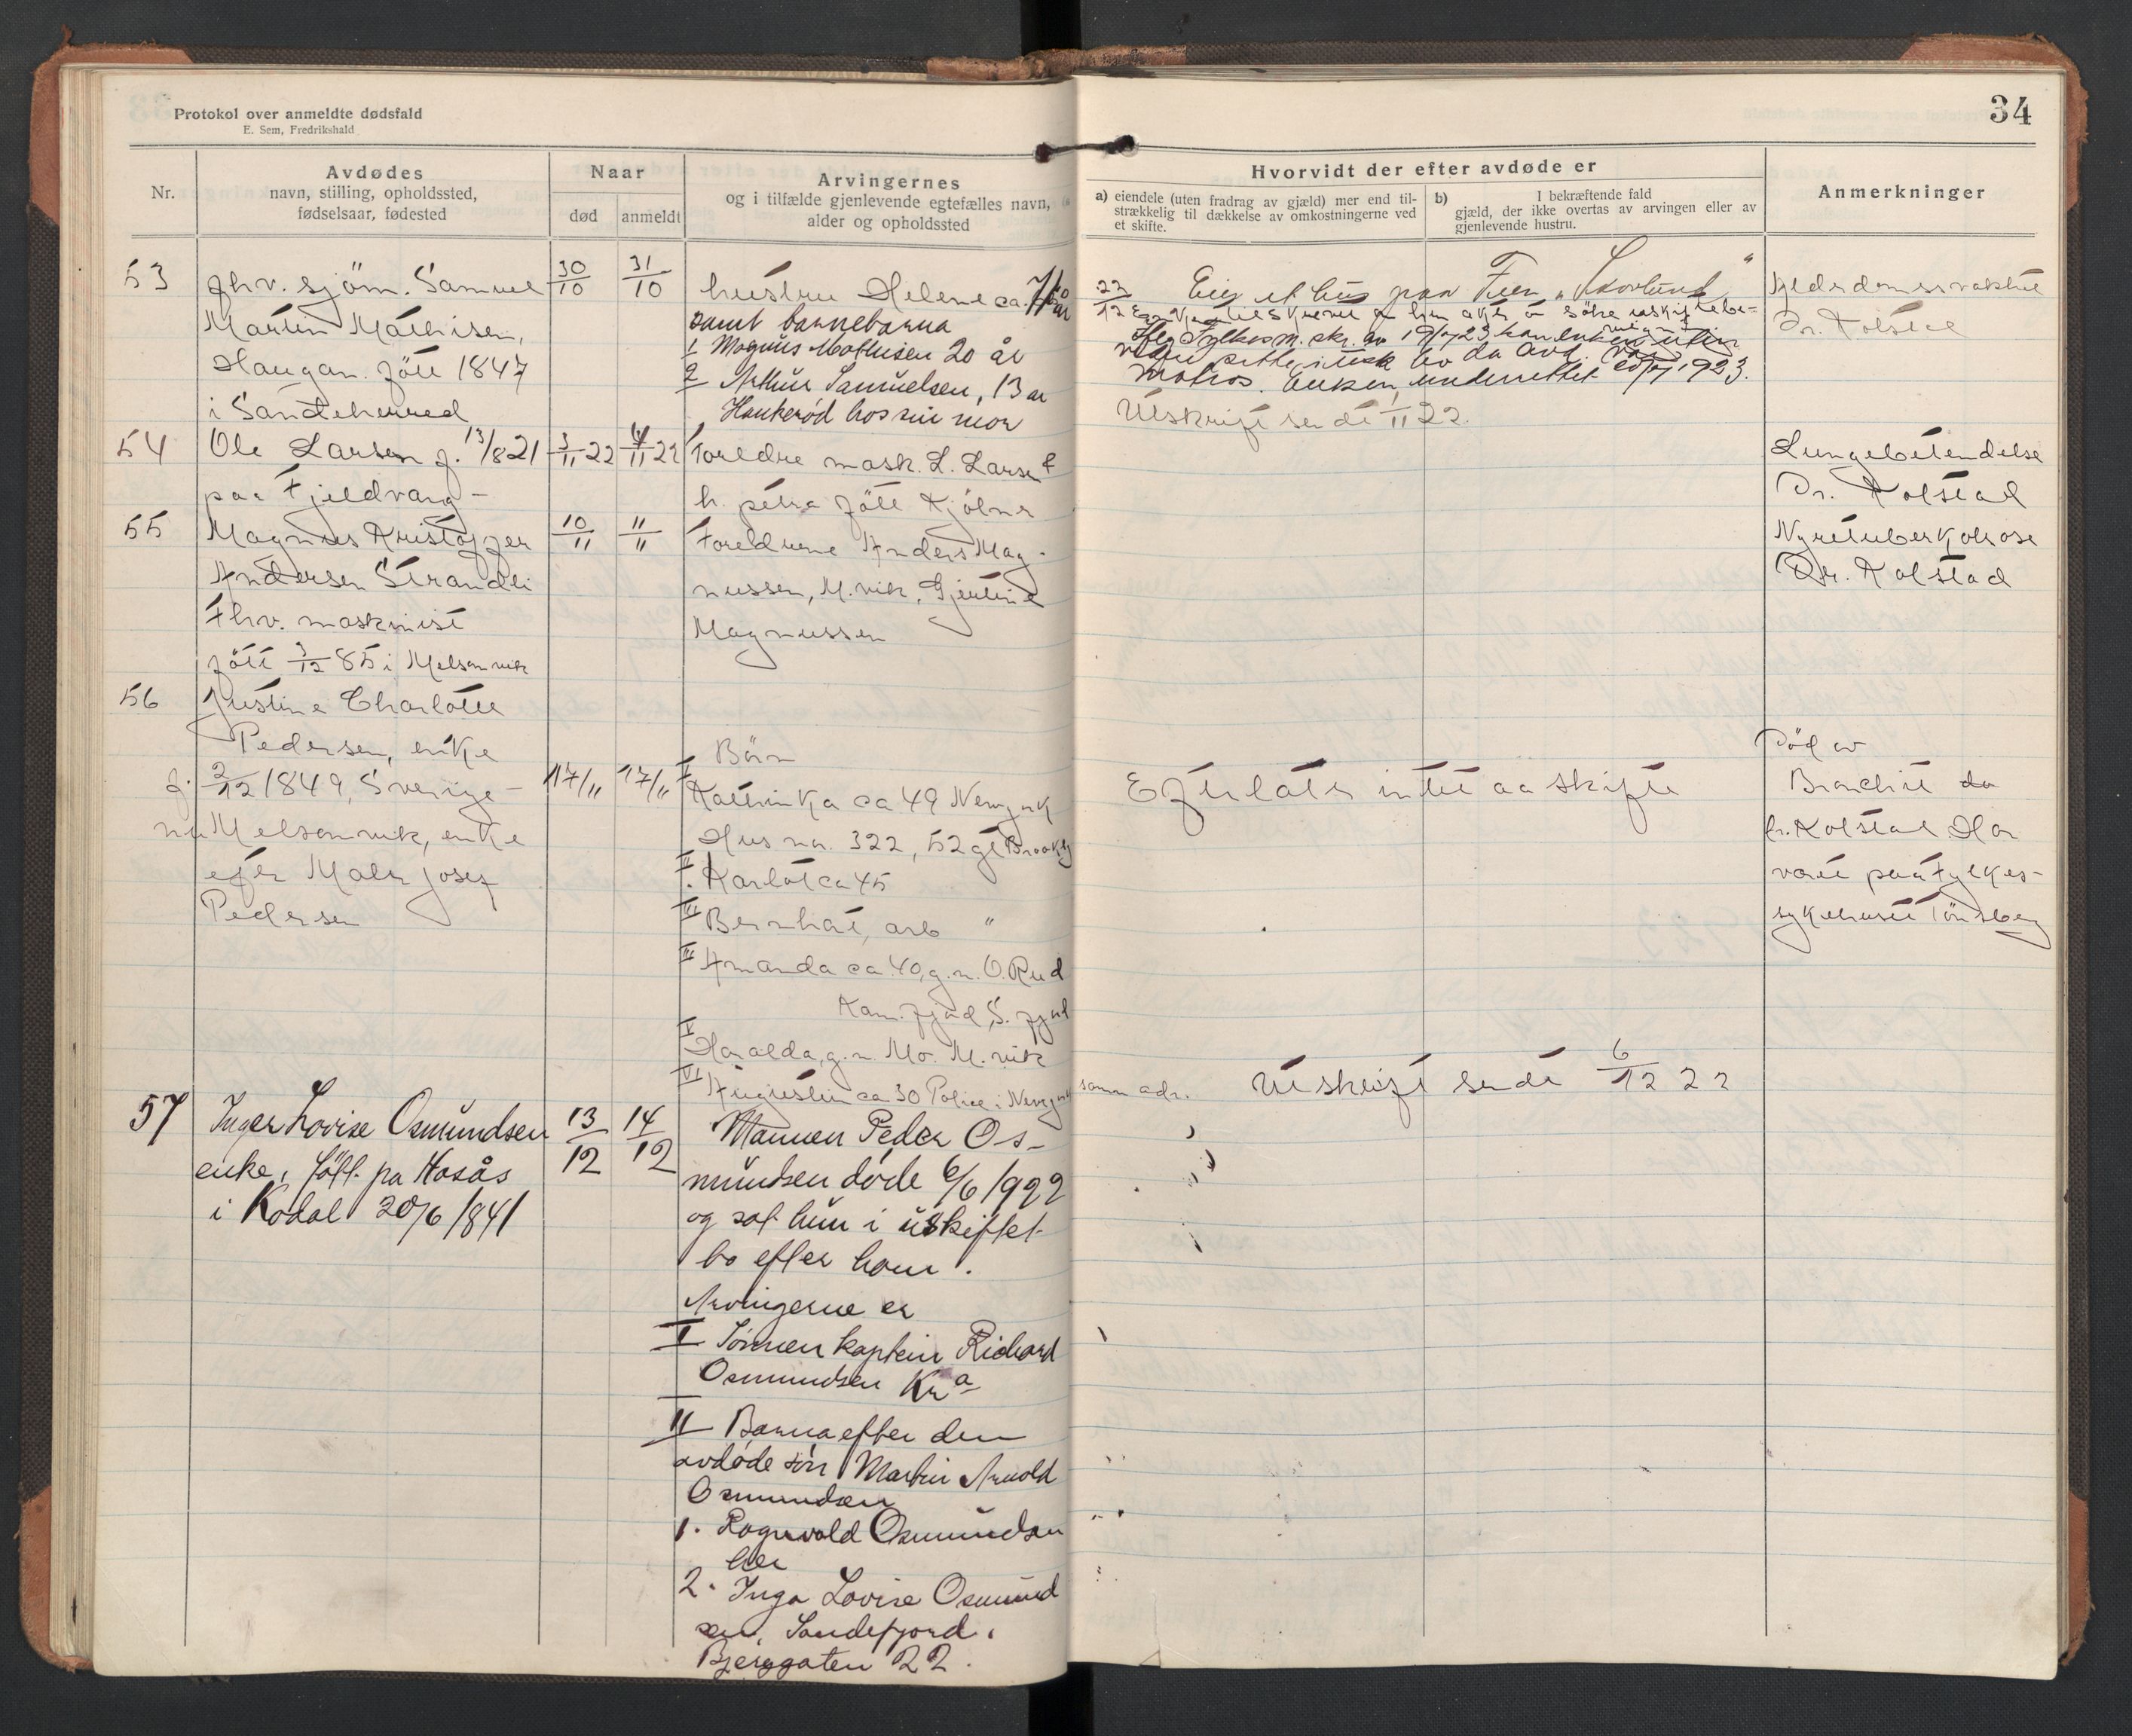 Protokol over anmeldte dødsfald
E. Sem, Fredrikshald
34
Nr.
Avdødes
navn, stilling, opholdssted,
fødselsaar, fødested
Naar
død
anmeldt
Arvingernes
og i tilfælde gjenlevende egtefælles navn,
alder og opholdssted
Hvorvidt der efter avdøde er
a) eiendele (uten fradrag av gjæld) mer end til-
strækkelig til dækkelse av omkostningerne ved
et skifte.
b) I bekræftende fald
gjæld, der ikke overtas av arvingen eller av
gjenlevende hustru.
Anmerkninger
53
fhv. sjöm. Samuel
Martin Mathisen,
Haugan. fött 1847
i Sandeherred
30/10
31/10
hustru Helene ca. 70 år
samt barnebarna
1 Magnus Mathisen 20 år
2 Arthur Samuelsen, 13 år
Haukerød hos sin mor
Eier et hus paa Tuen „Skovlund"
22/12
matros. Enken underrettet 20/7 1923.
Utskrift sendt 1/11 22.
Dr. Kolstad
54
Ole Larsen f. 13/8 21
paa Fjeldvang -
3/11 22
4/11 22
Foreldre mask. L. Larsen &
h. petra fött Kjölner
Lungebetendelse
Dr. Kolstad
55
Magnus Kristoffer
Andersen Strandli
Fhv. maskinist
fött 3/12 85 i Melsomvik
10/11
11/11
Foreldrene Anders Mag-
nussen, M.vik, Gjertine
Magnussen
Nyretuberkolose
Dr. Kolstad
56
Justine Charlotte
Pedersen, enke
f. 2/12 1849, Sverige -
nu Melsomvik, enke
efter Maler Josef
Pedersen
17/11
17/11
Börn
I Kathinka ca 49 Newyork
Hus no. 322, 52 gt Brookly
II. Karlot ca 45
III Bernhat, arb "
III Amanda ca. 40, g.m. O. Rud
Kam.fjord, S. fjord
V Haralda, g.m. Mo. M.vik
VI Augustin ca 30 Police i Newyork samm adr.
Efterlater intet aa skifte
Utskrift sendt 6/12 22
Död av
Bronchit
dr. Kolstad Har
varit paa Fylkes-
sykehuset Tönsberg
57
Inger Lovise Osmundsen
enke, født pa Hasås
i Kodal 20/6 1841
13/12
14/12
Mannen Peder Os-
mundsen døde 6/6 1922
og sat hun i uskiftet
bo efter ham.
Arvingerne er
I Sønnen kaptein Richard
Osmundsen Kra
II Barna efter den
avdøde søn Martin Arnold
Osmundsen
1. Ragnvald Osmundsen
her
2. Inga Lovise Osmund
sen, Sandefjord,
Bjerggaten 22.